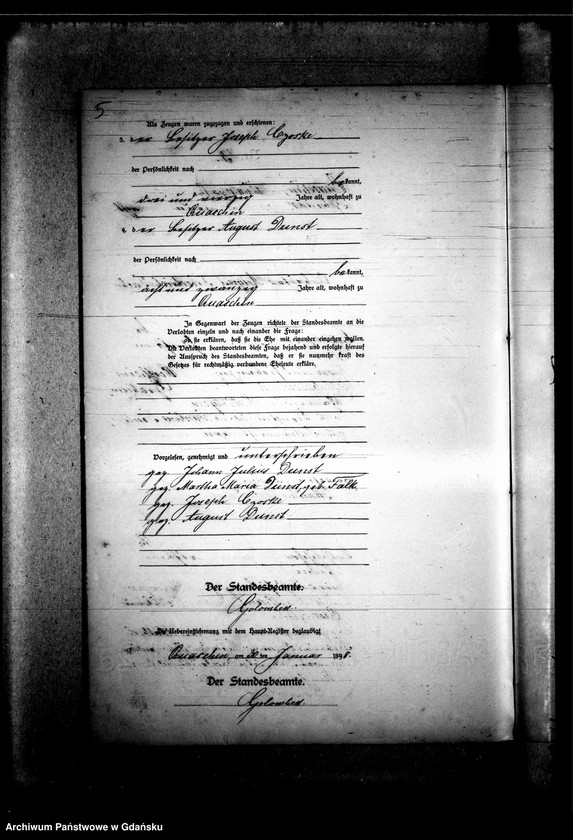 5
Als Zeugen waren zugezogen und erschienen:
3. der Besitzer Joseph Czoske
der Persönlichkeit nach
bekannt,
drei und vierzig Jahre alt, wohnhaft zu
Quaschin
4. der Besitzer August Dunst
der Persönlichkeit nach
bekannt,
acht und zwanzig Jahre alt, wohnhaft zu
Quaschin
In Gegenwart der Zeugen richtete der Standesbeamte an die
Verlobten einzeln und nach einander die Frage:
ob sie erklären, daß sie die Ehe mit einander eingehen wollen.
Die Verlobten beantworteten diese Frage bejahend und erfolgte hierauf
der Ausspruch des Standesbeamten, daß er sie nunmehr kraft des
Gesetzes für rechtmäßig verbundene Eheleute erkläre.
Vorgelesen, genehmigt und unterschrieben
gez. Johann Julius Dunst
gez. Martha Maria Dunst geb. Falk
gez. Joseph Czoske
gez. August Dunst
Der Standesbeamte.
Golombed
Die Uebereinstimmung mit dem Haupt-Register beglaubigt
Quaschin, am 20ten Januar 1898
Der Standesbeamte.
Golombed
Archiwum Państwowe w Gdańsku